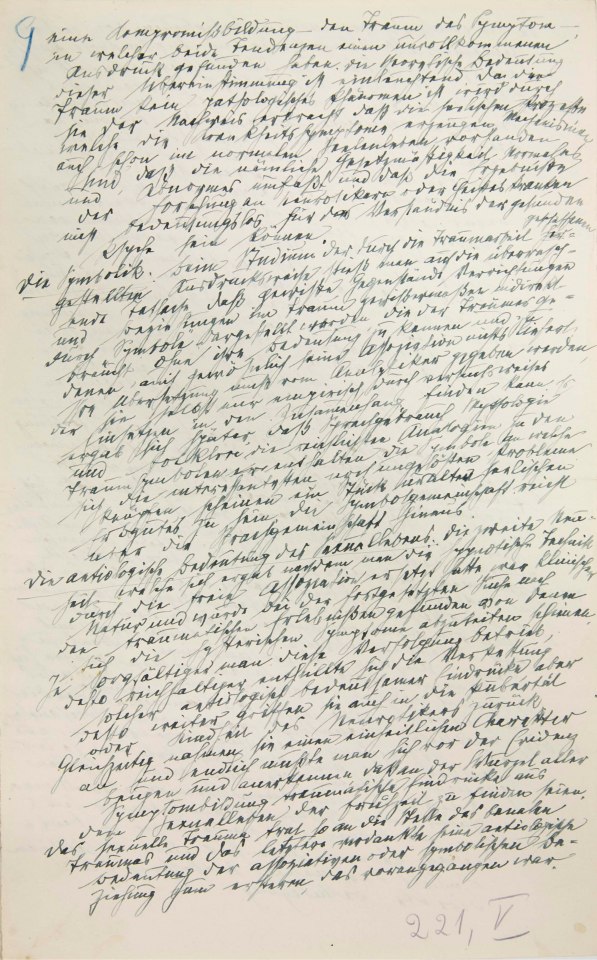 9
eine Kompromißbildung – den Traum das Symptom –
in welcher beide Tendenzen einen unvollkommenen
Ausdruck gefunden haben die theoretische Bedeutung
dieser Übereinstimmung ist einleuchtend da der
Traum kein pathologisches Phänomen ist wird durch
sie der Nachweis erbracht daß die seelischen
welche die Krankheitssymptome erzeugen
auch schon im normalen Seelenleben vorhanden
sind daß die nämliche Gesetzmäßigkeit Normales
und Abnormes umfaßt und daß die Ergebnisse
der Forschung an Neurotikern oder Geisteskranken
nicht bedeutungslos für das Verständnis der gesunden
Psyche sein können
Die Symbolik. Beim Studium der durch die Traumarbeit geschaffenen
Ausdrucksweise stieß man auf die überrasch-
ende Tatsache daß gewisse Gegenstände Verrichtungen
und Beziehungen im Traum gewissermaßen indirekt
durch Symbole dargestellt werden die der Träumer ge-
braucht ohne ihre Bedeutung zu kennen und zu
denen auch gewöhnlich seine Assoziation nichts liefert
Ihre Übersetzung muß vom Analytiker gegeben werden
der sie selbst nur empirisch durch versuchsweises
Einsetzen in den Zusammenhang finden kann Es
ergab sich später daß Sprachgebrauch Mythologie
und Folklore die reichlichsten Analogien zu den
Traumsymbolen enthalten die Symbole an welche
sich die interessantesten noch ungelösten Probleme
knüpfen scheinen ein Stück uralten seelischen
Erbgutes zu sein die Symbolgemeinschaft reicht
über die Sprachgemeinschaft hinaus
Die aetiologische Bedeutung des Sexuallebens. Die zweite Neu-
heit welche sich ergab nachdem man die hypnotische Technik
durch die freie Assoziation ersetzt hatte war klinischer
Natur und wurde bei der fortgesetzten Suche nach
den traumatischen Erlebnissen gefunden von denen
sich die hysterischen Symptome abzuleiten schienen.
Je sorgfältiger man diese Verfolgung betrieb,
desto reichhaltiger enthüllte sich die Verkettung
solcher aetiologisch bedeutsamer Eindrücke aber
desto weiter griffen sie auch in die Pubertät
oder Kindheit des Neurotikers zurück
Gleichzeitig nahmen sie einen einheitlichen Charakter
an und endlich mußte man sich vor der Evidenz
beugen und anerkennen daß an der Wurzel aller
Symptombildung traumatische Eindrücke aus
dem Sexualleben der Frühzeit zu finden seien.
Das sexuelle Trauma trat so an die Stelle des banalen
Traumas und das letztere verdankte seine aetiologische
Bedeutung der assoziativen oder symbolischen Be-
ziehung zum ersteren das vorangegangen war.
221, V